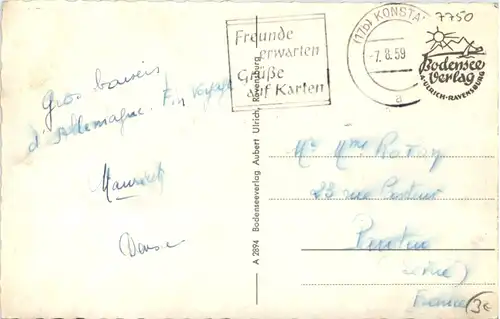 7750
Freunde
erwarten
Grüße
auf Karten
(17b) KONSTA
-7.8.59
a
Bodensee
Verlag
A. ULRICH-RAVENSBURG
Gros baisers
d'Allemagne. Fin voyage
Maurice
Denise
A 2894 Bodenseeverlag Aubert Ulrich, Ravensburg
Mr Mme
23 rue Pasteur
Pantin
(Seine)
France
3€